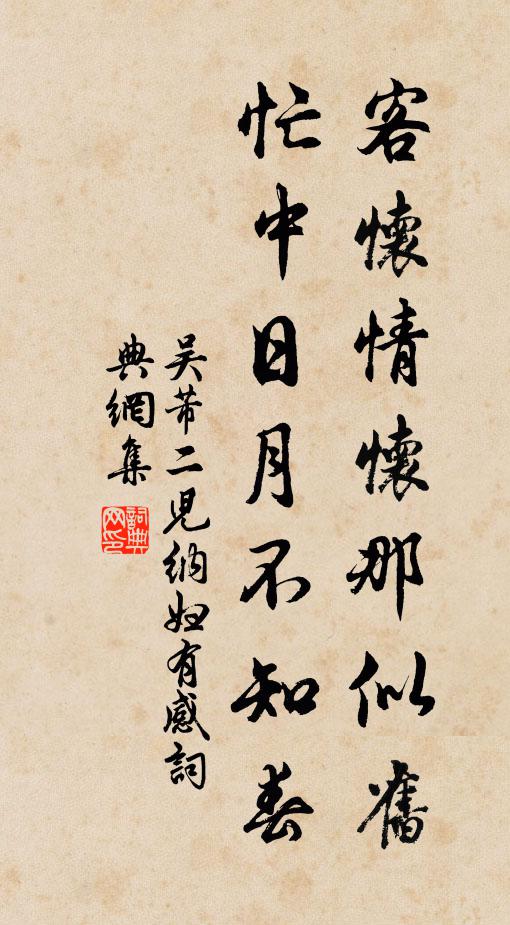 客懷情懷那似舊
忙中日月不知春
吳芾二兒納婦有感詞
典網集
詞典
网印